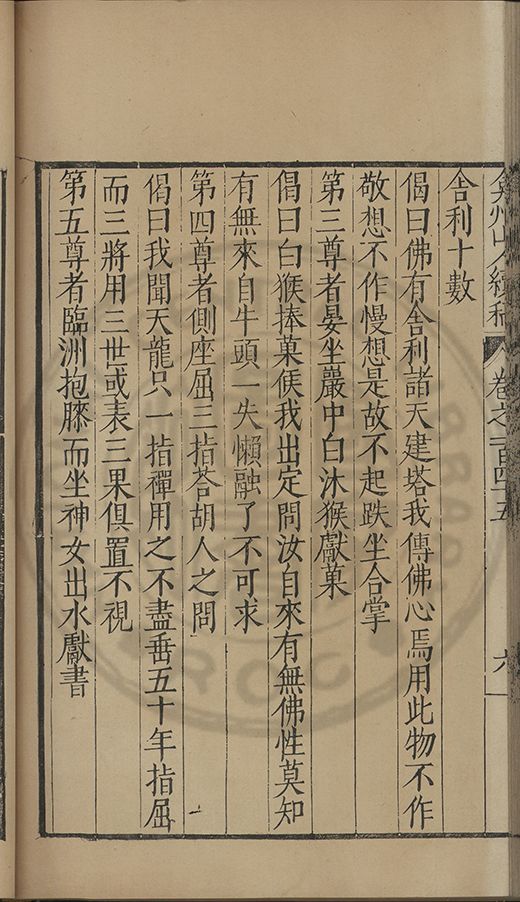 弇州山人續稿 卷之一百四十五 六
舍利十數
偈曰佛有舍利諸天建塔我傳佛心焉用此物不作
敬想不作慢想是故不起趺坐合掌
第三尊者晏坐巖中白沐猴獻菓
偈曰白猴捧菓俟我出定問汝自來有無佛性莫知
有無來自牛頭一失懶融了不可求
第四尊者側座屈三指荅胡人之問
偈曰我聞天龍只一指禪用之不盡垂五十年指屈
而三將用三世或表三果俱置不視
第五尊者臨洲抱膝而坐神女出水獻書